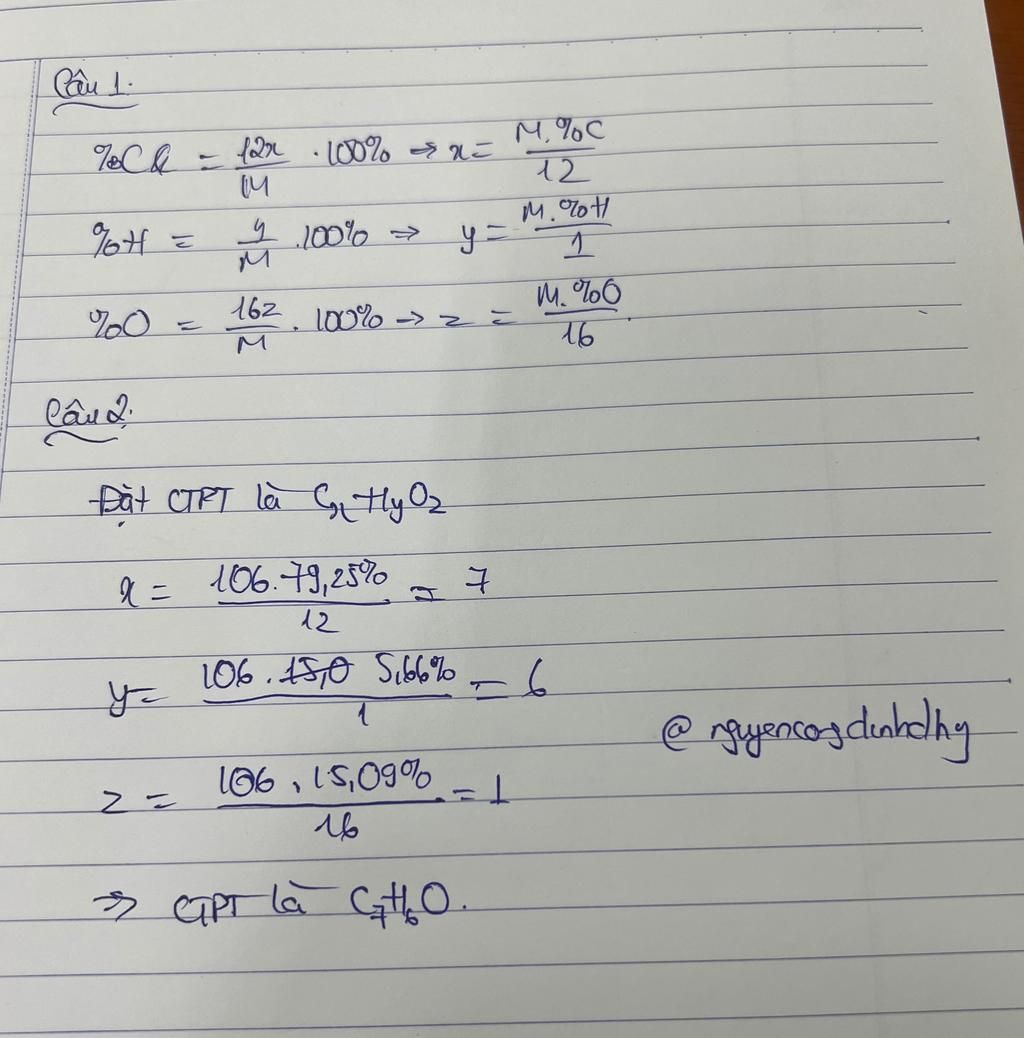 Câu 1.
%C = 12x/M . 100% → x = M.%C/12
%H = y/M .100% => y = M.%H/1
%O = 16z/M . 100% → z = M.%O/16.
Câu 2.
Đặt CTPT là CxHyOz
x = 106.79,25%/12 = 7
y = 106.15,0 5,66%/1 = 6
@nguyencongdinhdhy
z = 106.15,09%/16 = 1
=> CTPT là C7H6O.